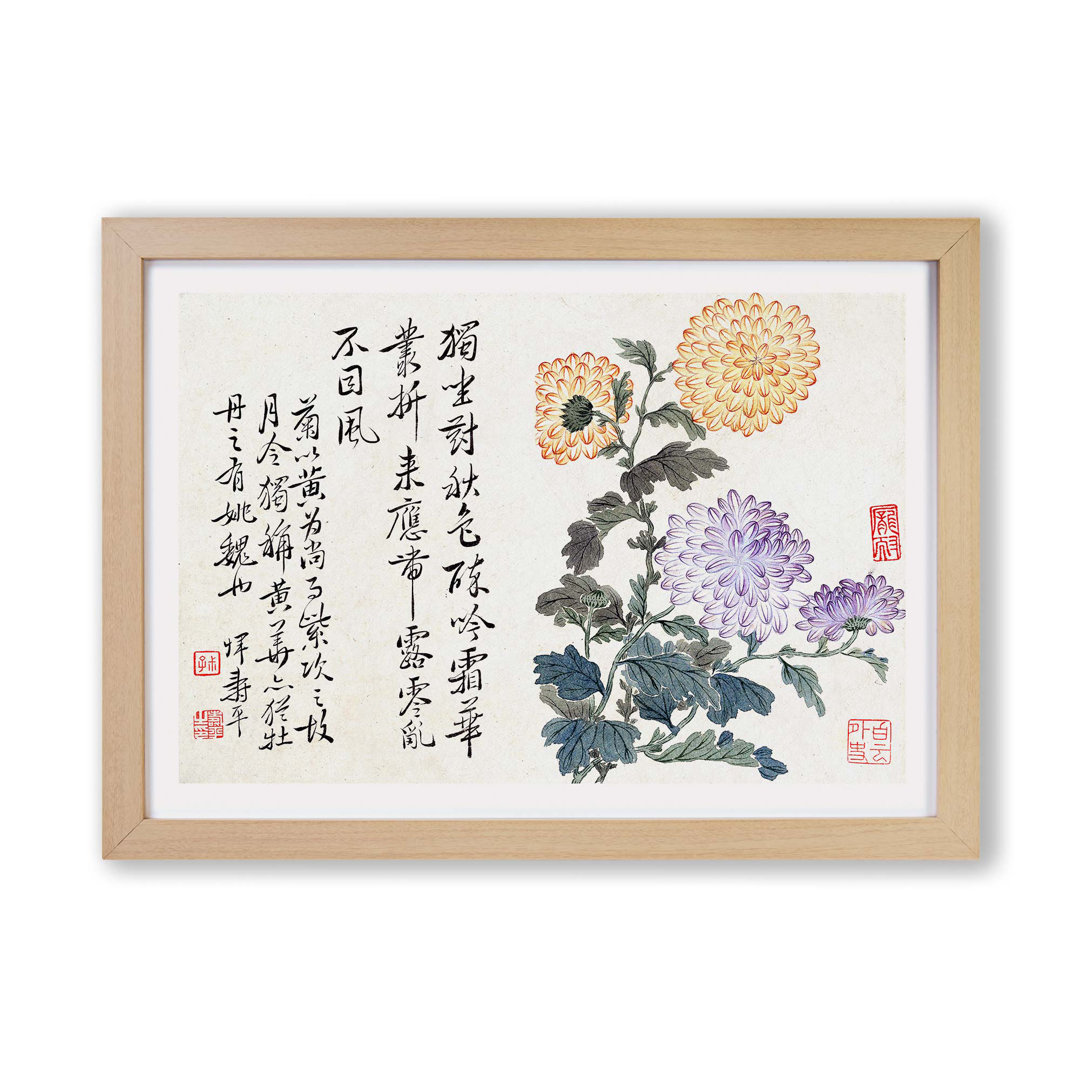 獨坐對秋色酔吟霜華
叢折来應帯露零亂
不因風
菊以黄为尚而紫次之故
月令獨稱黄華亦猶牡
丹之有姚魏也
惲壽平
白云外史